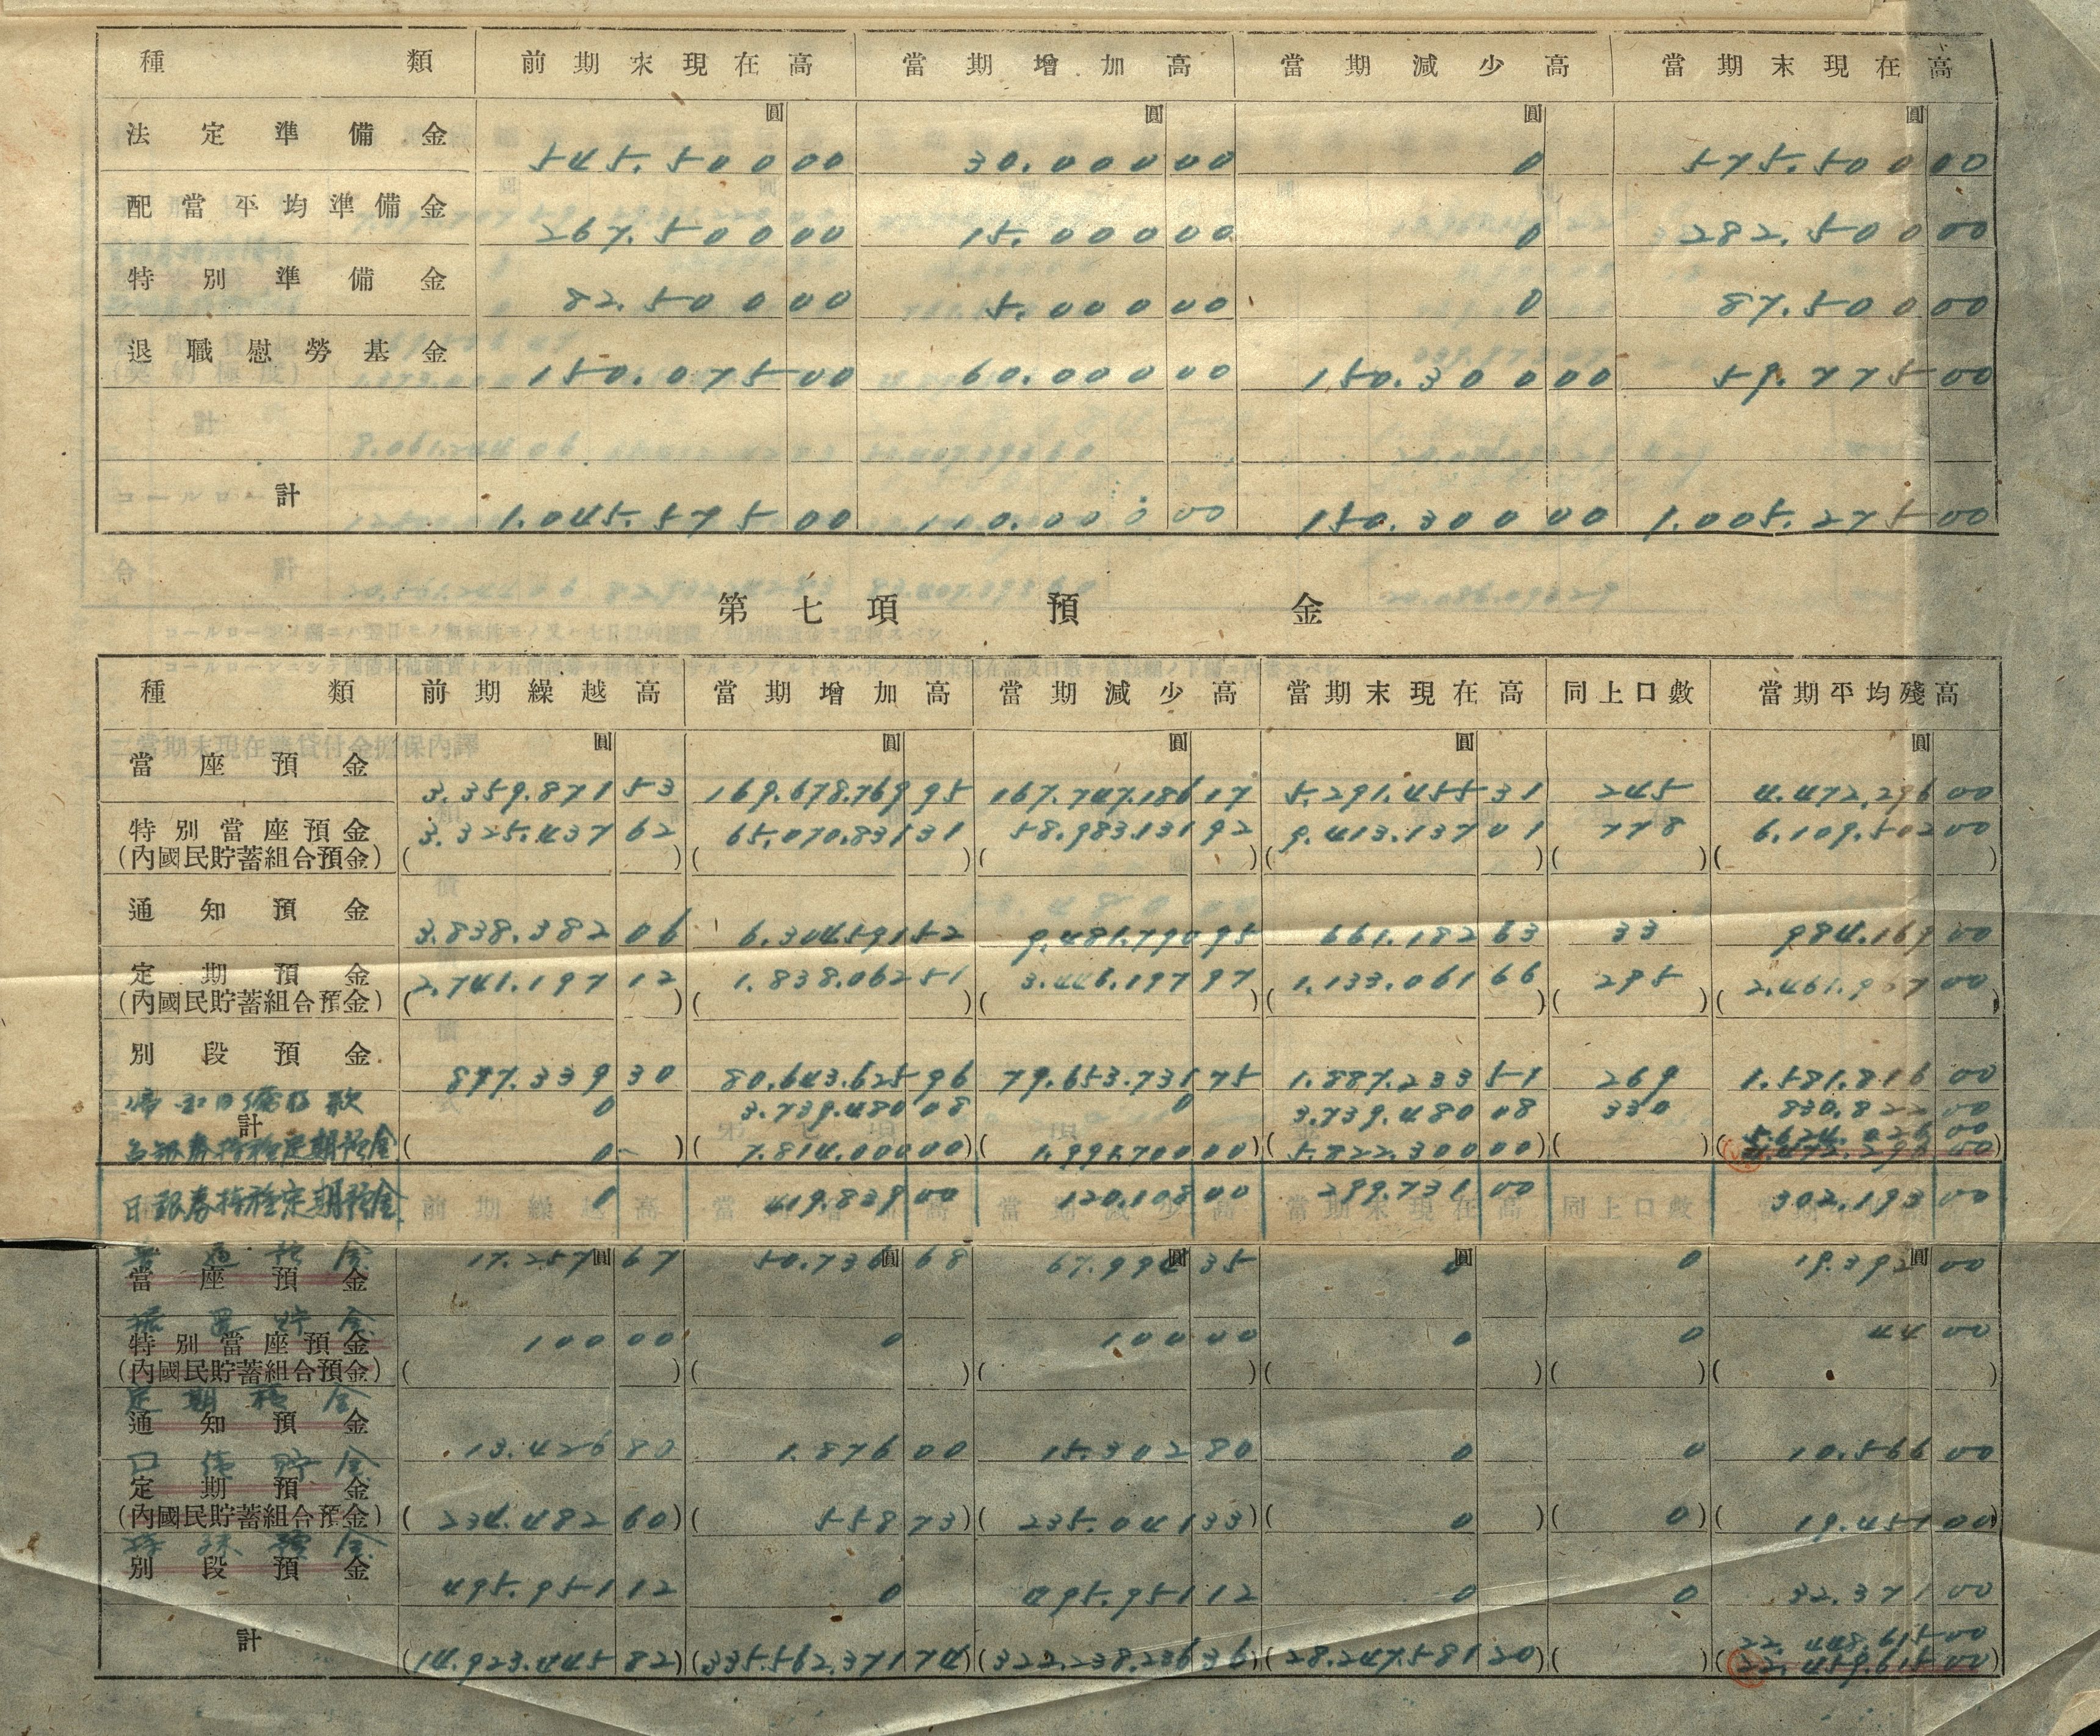 種類 前期末現在高 當期增加高 當期減少高 當期末現在高
圓 圓 圓 圓
法定準備金 545.500 00 30.000 00 0 575.500 00
配當平均準備金 267.500 00 15.000 00 0 282.500 00
特別準備金 82.500 00 5.000 00 0 87.500 00
退職慰勞基金 150.075 00 60.000 00 150.300 00 59.775 00
計 1.045.575 00 110.000 00 150.300 00 1.005.275 00
第七項 預金
種類 前期繰越高 當期增加高 當期減少高 當期末現在高 同上口數 當期平均殘高
圓 圓 圓 圓 圓
當座預金 3.359.871 53 169.678.769 95 167.747.186 17 5.291.455 31 245 4.472.296 00
特別當座預金 3.325.437 62 65.070.831 31 58.983.131 92 9.413.137 01 778 6.109.502 00
(內國民貯蓄組合預金) ( ) ( ) ( ) ( ) ( ) ( )
通知預金 3.838.382 06 6.304.591 52 9.481.790 95 661.182 63 33 984.169 00
定期預金 2.741.197 12 1.838.062 51 3.446.197 97 1.133.061 66 295 2.461.967 00
(內國民貯蓄組合預金) ( ) ( ) ( ) ( ) ( ) ( )
別段預金 897.339 30 80.643.625 96 79.653.731 75 1.887.233 51 269 1.581.816 00
0 3.739.480 08 0 3.739.480 08 330 830.822 00
計
台銀券特種定期預金 ( 0 ) ( 7.814.000 00 ) ( 1.991.700 00 ) ( 5.822.300 00 ) ( )
日銀券特種定期預金 0 419.839 00 120.108 00 299.731 00 302.193 00
前期繰越高 當期增加高 當期減少高 當期末現在高 同上口數
普通預金 17.257 67 50.736 68 67.994 35 0 0 19.392 00
當座預金 圓 圓 圓 圓 圓
據置貯金 100 00 0 100 00 0 0 44 00
特別當座預金
(內國民貯蓄組合預金) ( ) ( ) ( ) ( ) ( ) ( )
定期積金 13.426 80 1.876 00 15.302 80 0 0 10.566 00
通知預金
日掛貯金
定期預金
(內國民貯蓄組合預金) ( 234.482 60 ) ( 558 73 ) ( 235.041 33 ) ( 0 ) ( 0 ) ( 19.451 00 )
特殊預金 495.951 12 0 495.951 12 0 0 32.371 00
別段預金
22.448.615 00
計 ( 14.923.445 82 ) ( 335.562.371 74 ) ( 322.238.236 36 ) ( 28.247.581 20 ) ( ) ( 22.459.615 00 )